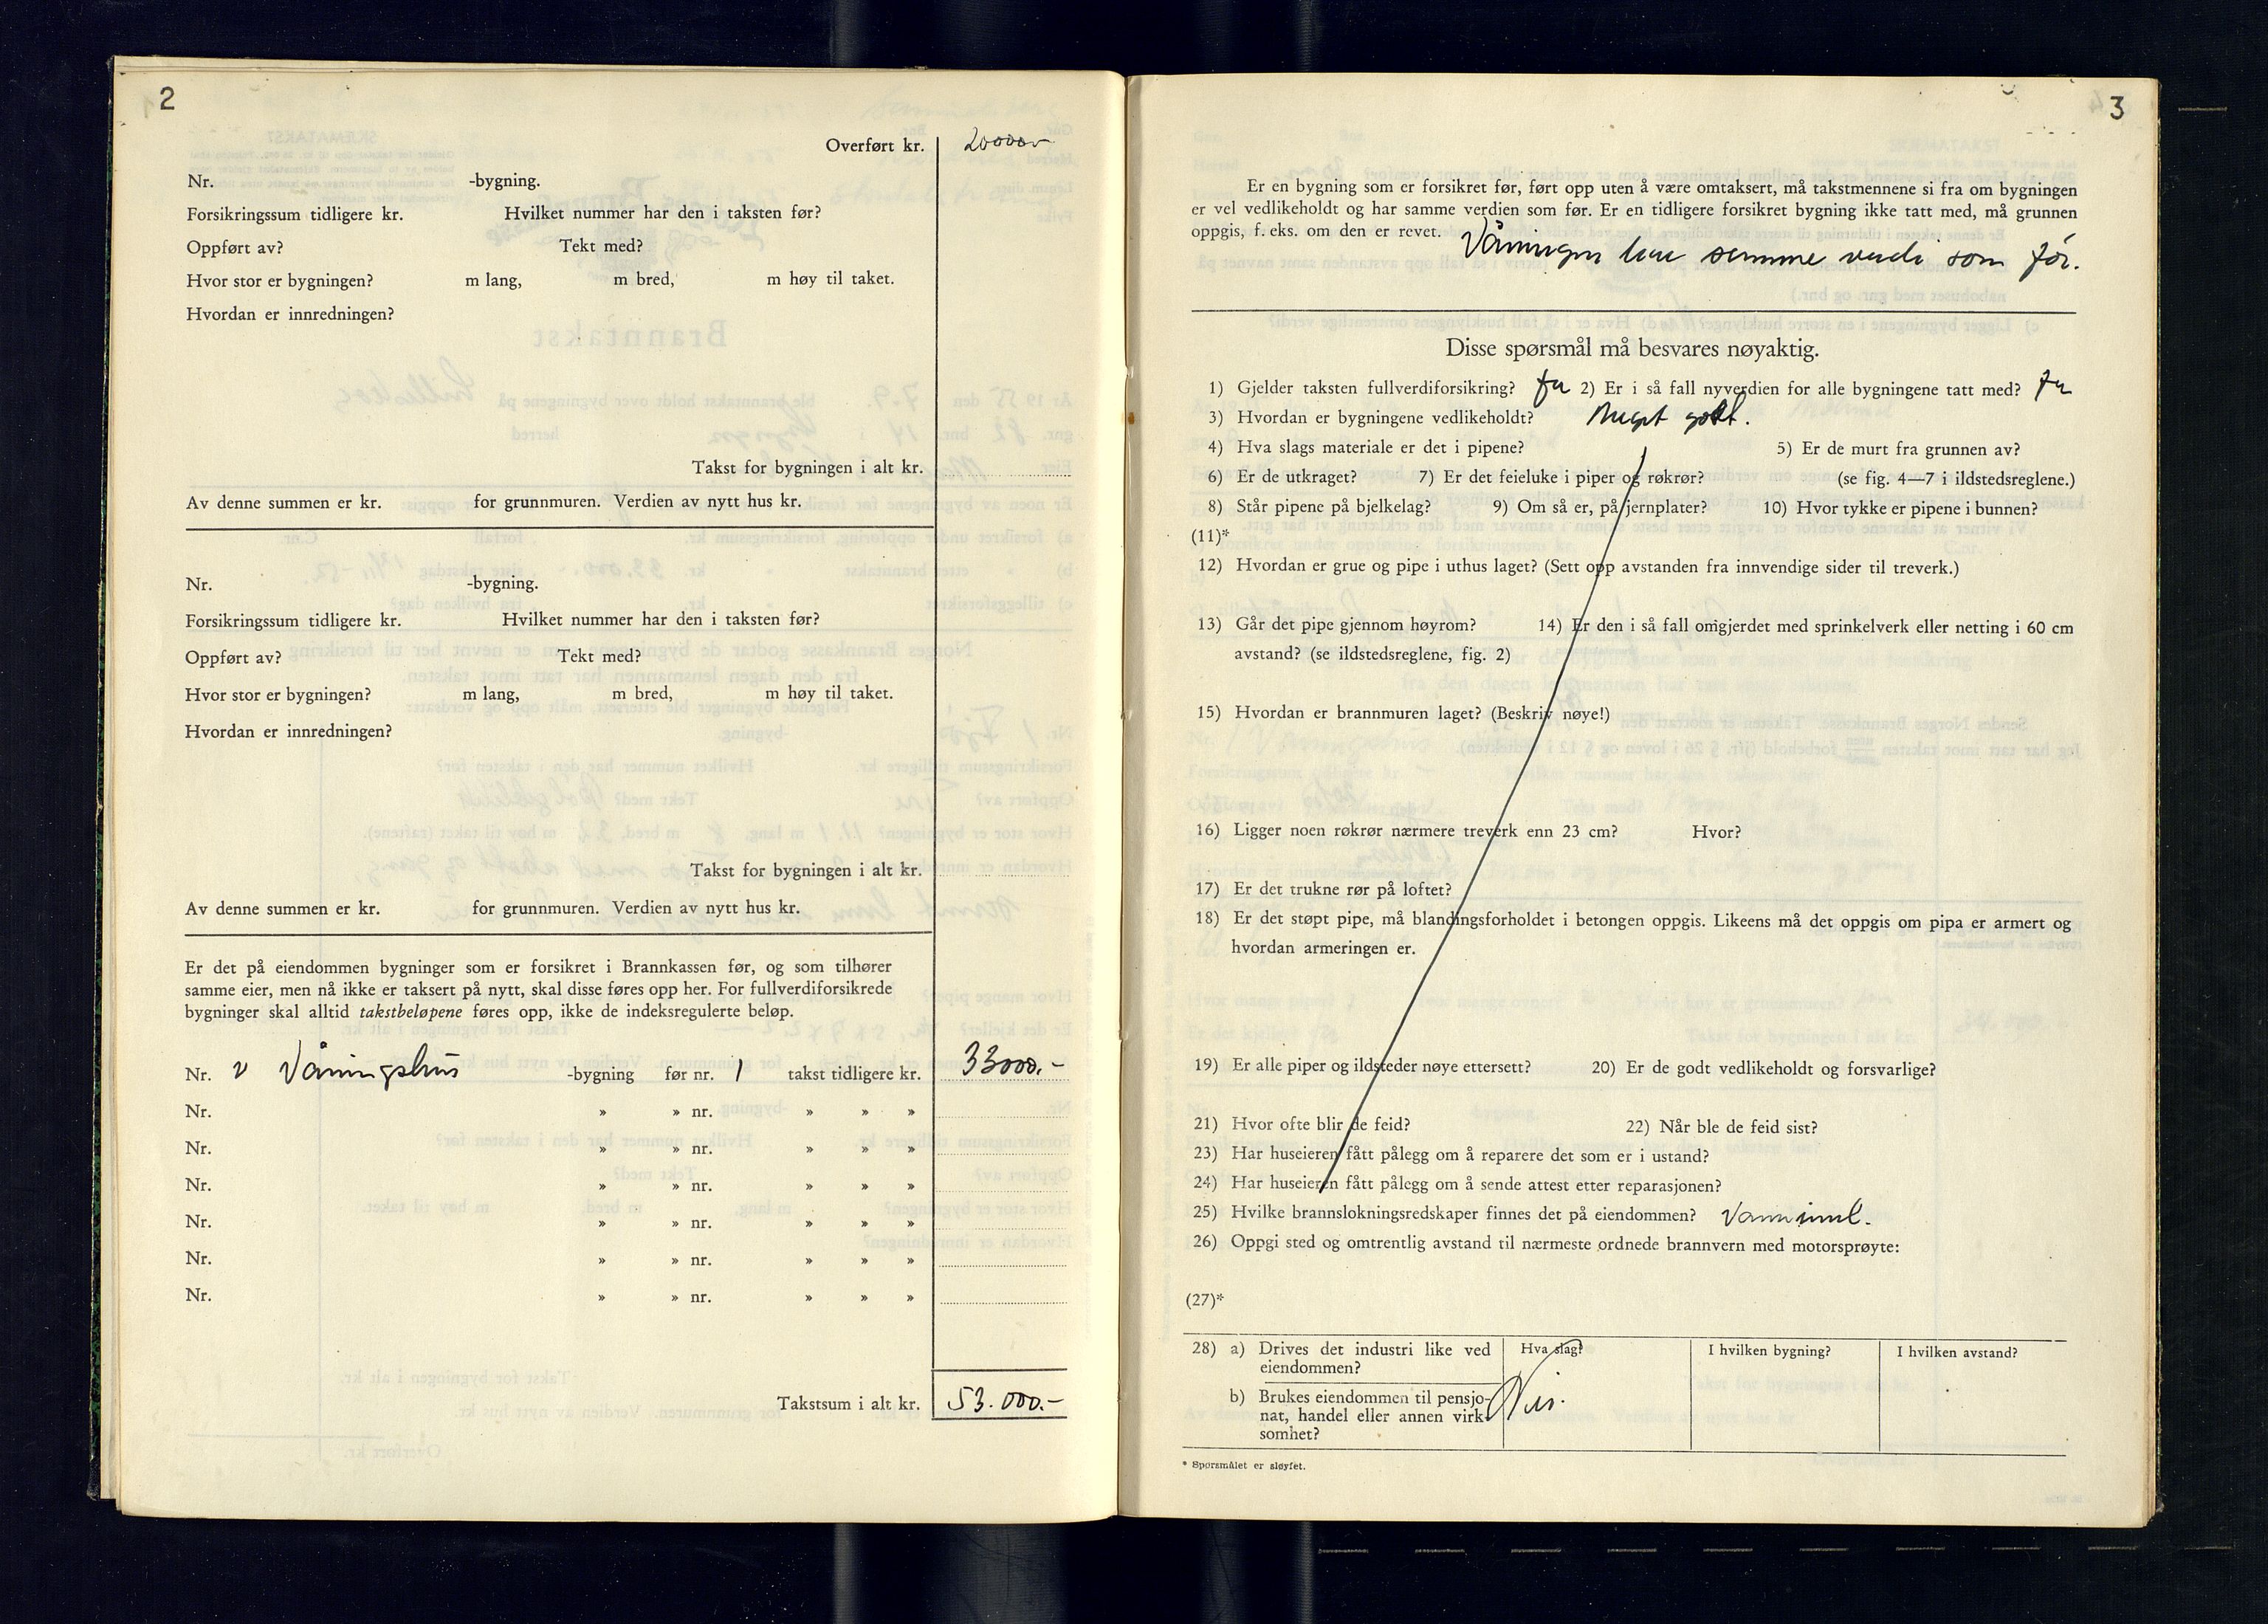 2
Overført kr. 20000.-
Nr. -bygning.
Forsikringssum tidligere kr. Hvilket nummer har den i taksten før?
Oppført av? Tekt med?
Hvor stor er bygningen? m lang, m bred, m høy til taket.
Hvordan er innredningen?
Takst for bygningen i alt kr.
Av denne summen er kr. for grunnmuren. Verdien av nytt hus kr.
Nr. -bygning.
Forsikringssum tidligere kr. Hvilket nummer har den i taksten før?
Oppført av? Tekt med?
Hvor stor er bygningen? m lang, m bred, m høy til taket.
Hvordan er innredningen?
Takst for bygningen i alt kr.
Av denne summen er kr. for grunnmuren. Verdien av nytt hus kr.
Er det på eiendommen bygninger som er forsikret i Brannkassen før, og som tilhører
samme eier, men nå ikke er taksert på nytt, skal disse føres opp her. For fullverdiforsikrede
bygninger skal alltid takstbeløpene føres opp, ikke de indeksregulerte beløp.
Nr. Våningshus -bygning før nr. 1 takst tidligere kr. 33000.-
Nr. » » nr. » » »
Nr. » » nr. » » »
Nr. » » nr. » » »
Nr. » » nr. » » »
Nr. » » nr. » » »
Nr. » » nr. » » »
Takstsum i alt kr. 53.000.-
3
Er en bygning som er forsikret før, ført opp uten å være omtaksert, må takstmennene si fra om bygningen
er vel vedlikeholdt og har samme verdien som før. Er en tidligere forsikret bygning ikke tatt med, må grunnen
oppgis, f. eks. om den er revet. Våningen har samme verdi som før.
Disse spørsmål må besvares nøyaktig.
1) Gjelder taksten fullverdiforsikring? Ja 2) Er i så fall nyverdien for alle bygningene tatt med? Ja
3) Hvordan er bygningene vedlikeholdt? Meget godt.
4) Hva slags materiale er det i pipene? 5) Er de murt fra grunnen av?
6) Er de utkraget? 7) Er det feieluke i piper og røkrør? (se fig. 4—7 i ildstedsreglene.)
8) Står pipene på bjelkelag? 9) Om så er, på jernplater? 10) Hvor tykke er pipene i bunnen?
(11)*
12) Hvordan er grue og pipe i uthus laget? (Sett opp avstanden fra innvendige sider til treverk.)
13) Går det pipe gjennom høyrom? 14) Er den i så fall omgjerdet med sprinkelverk eller netting i 60 cm
avstand? (se ildstedsreglene, fig. 2)
15) Hvordan er brannmuren laget? (Beskriv nøye!)
16) Ligger noen røkrør nærmere treverk enn 23 cm? Hvor?
17) Er det trukne rør på loftet?
18) Er det støpt pipe, må blandingsforholdet i betongen oppgis. Likeens må det oppgis om pipa er armert og
hvordan armeringen er.
19) Er alle piper og ildsteder nøye ettersett? 20) Er de godt vedlikeholdt og forsvarlige?
21) Hvor ofte blir de feid? 22) Når ble de feid sist?
23) Har huseieren fått pålegg om å reparere det som er i ustand?
24) Har huseieren fått pålegg om å sende attest etter reparasjonen?
25) Hvilke brannslokningsredskaper finnes det på eiendommen? Vanninnl.
26) Oppgi sted og omtrentlig avstand til nærmeste ordnede brannvern med motorsprøyte:
(27)*
28) a) Drives det industri like ved Hva slag? I hvilken bygning? I hvilken avstand?
eiendommen?
b) Brukes eiendommen til pensjo-
nat, handel eller annen virk-
somhet?
* Spørsmålet er sløyfet.